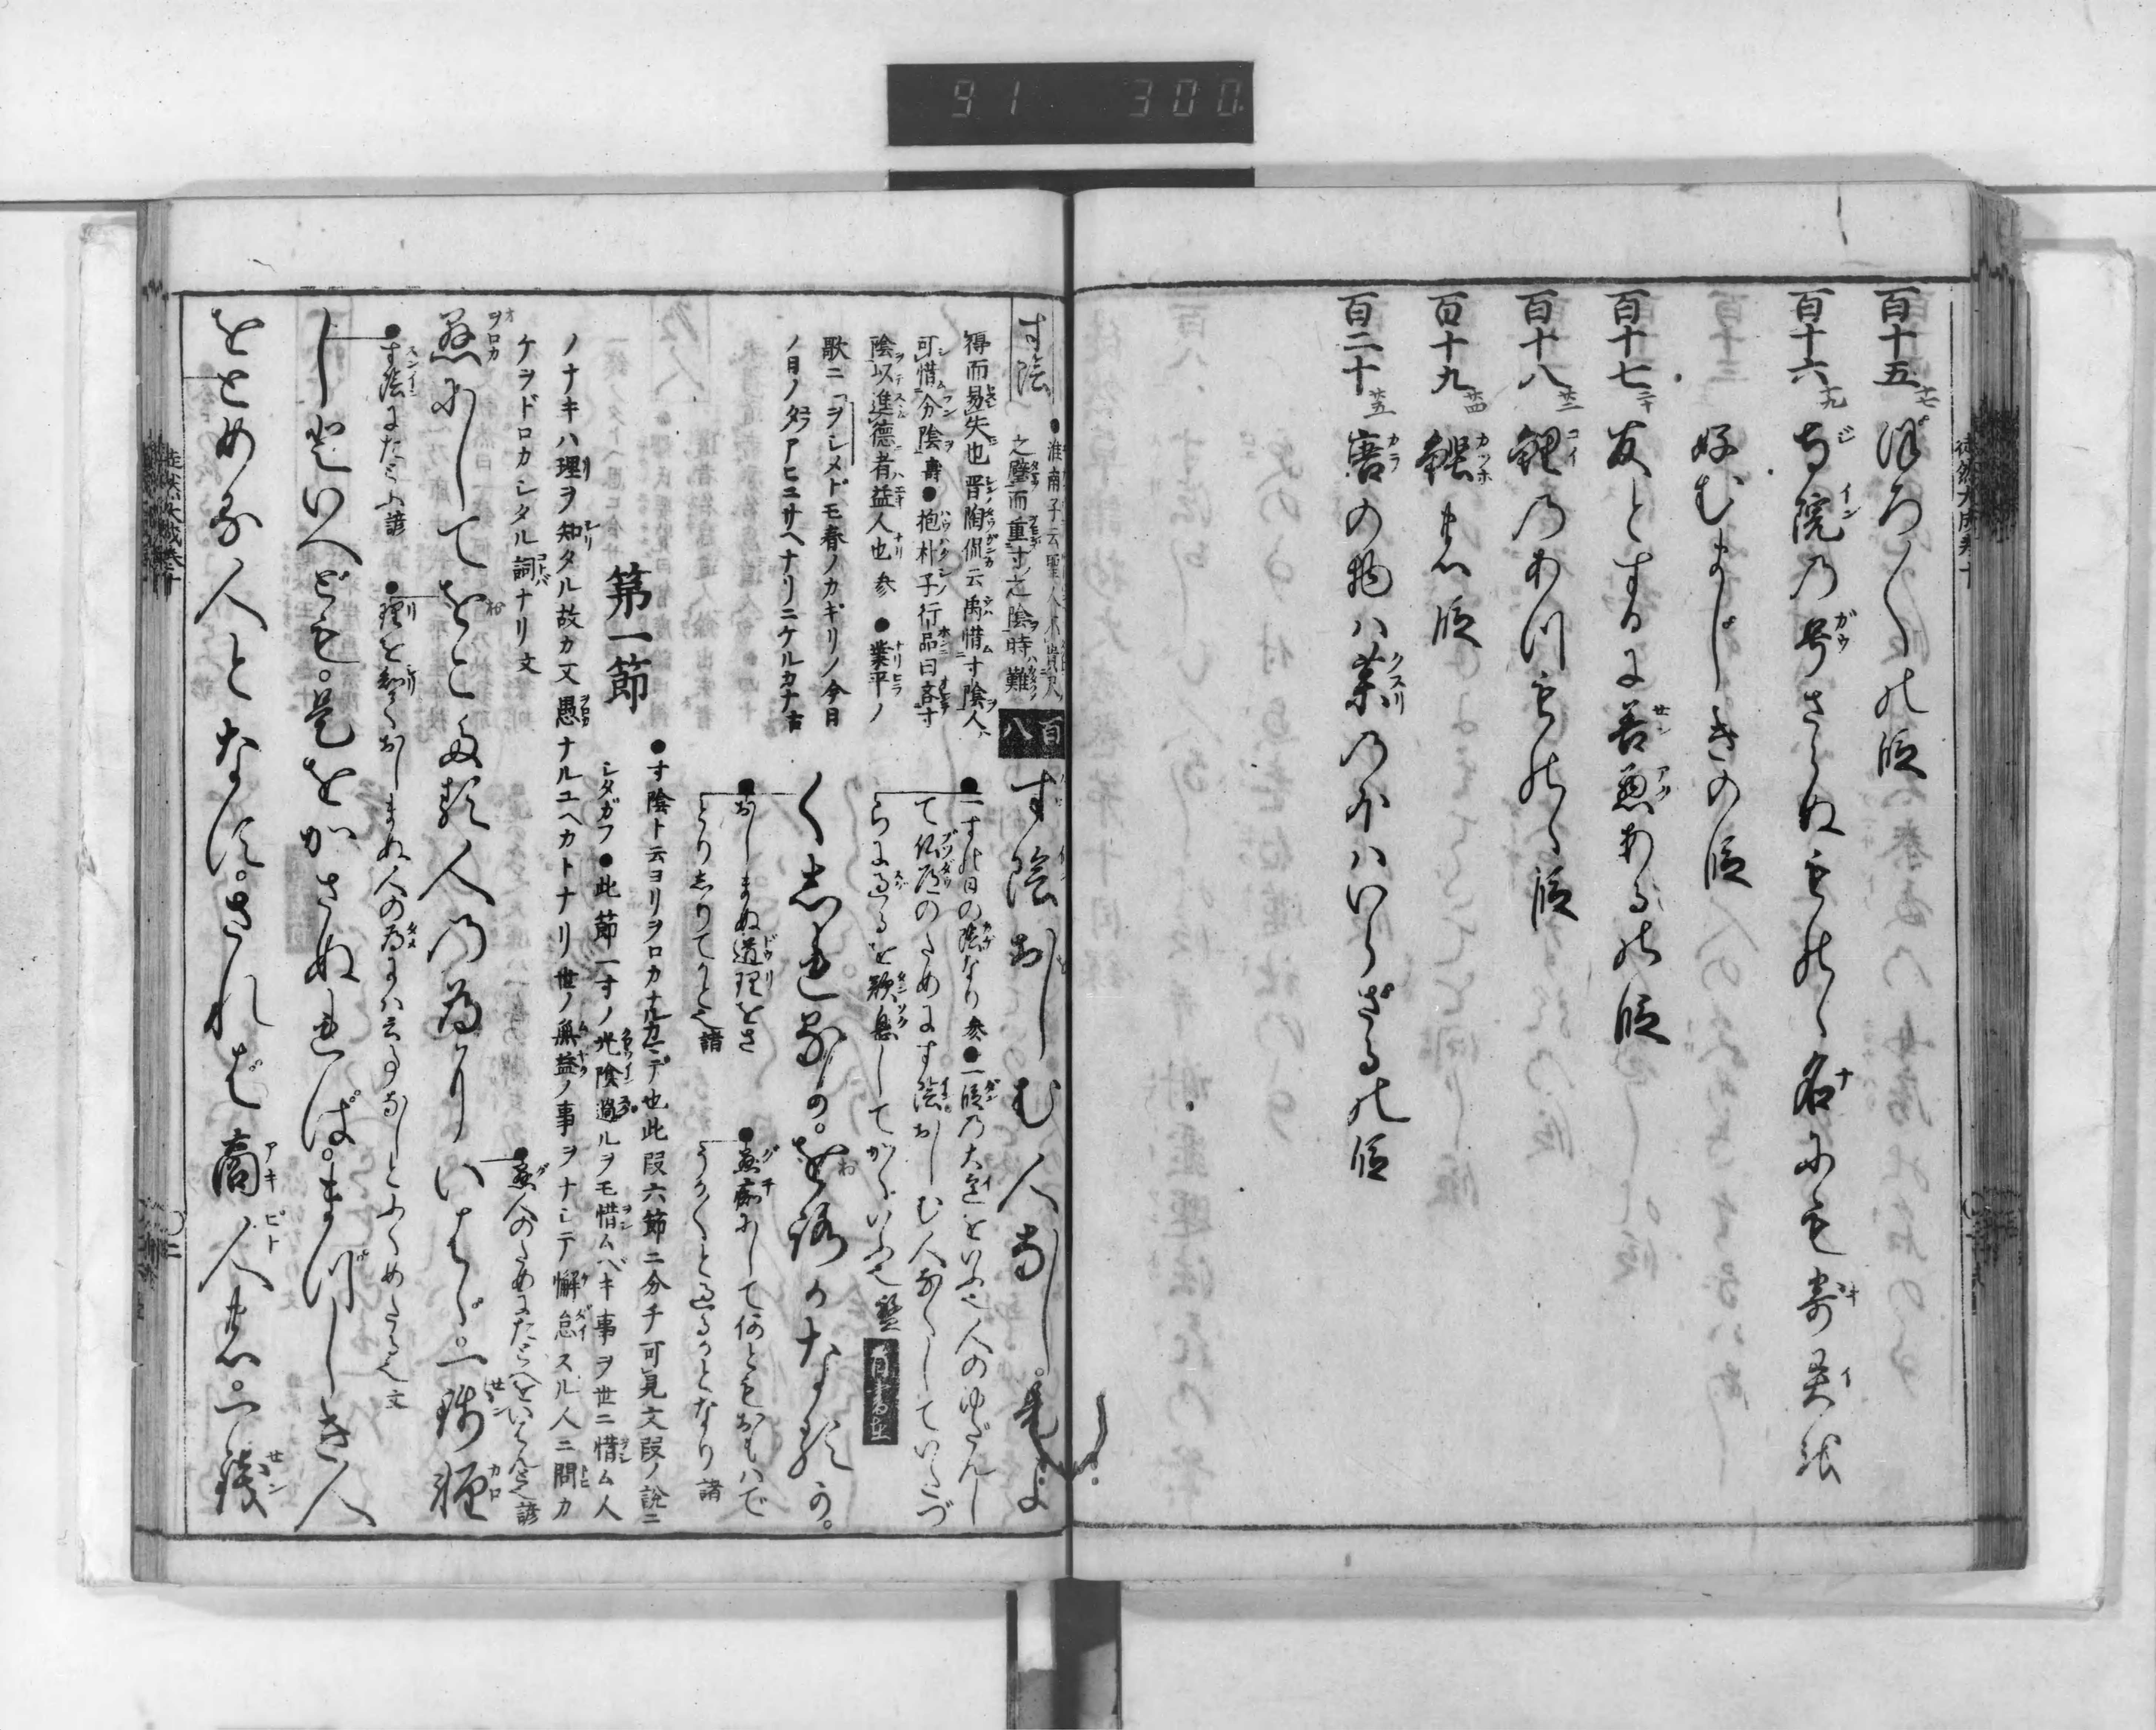 91 300
百十五 十七 ぼろ〳〵の段
百十六 十九 寺院の号さらぬものゝ名にも奇異を
好むまじきの段
百十七 二十 友とするに善悪あるの段
百十八 廿二 鯉のあつものゝ段
百十九 廿四 鰹魚の段
百二十 廿五 唐の物ハ薬の外ハいらざるの段
寸陰 ●淮南子云聖人不貴尺
之璧而重寸之陰時難
得而易失也晋陶侃云禹惜寸陰人
可惜分陰 壽 ●抱朴子行品曰吝寸
陰以進徳者益人也 参 ●業平ノ
歌ニヲシメドモ春ノカギリノ今日
ノ日ノ夕アヒニサヘナリニケルカナ 古
百八
寸陰おしむ人なし。是よ
●一寸の日の陰なり 参 ●一段の大意をいふ也人のゆだんし
て仏道のために寸陰おしむ人なくしていたづ
らに過るを歎息してかくいふ也 盤
く志れるか。愚かなるか。
●おしまぬ道理をさ
とり志りてかと也 諸
●愚痴にして何ともおもハで
うか〳〵と過るかとなり 諸
●寸陰ト云ヨリヲロカナルカマデ也此段六節ニ分チ可見文段ノ説ニ
第一節
シタガフ●此節一寸ノ光陰過ルヲモ惜ムベキ事ヲ世ニ惜ム人
ノナキハ理ヲ知タル故カ又愚ナルユヘカトナリ世ノ無益ノ事ヲナシテ懈怠スル人ニ問カ
ケヲドロカシタル詞ナリ 文
●愚人のためにたとへをいはんと也 諺
愚にしてをこたる人の為にいはゞ。一銭軽
●寸陰にたとふ 諺
●理を知ておしまぬ人の為にハ云事なしとふくめたる也 文
しといへども。是をかさぬれば。まづしき人
をとめる人となす。されば商人の。一銭